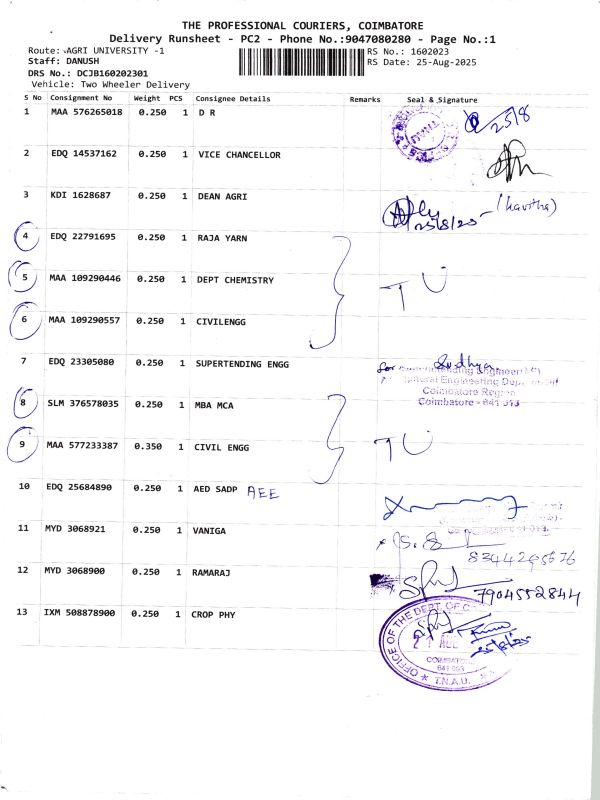 THE PROFESSIONAL COURIERS, COIMBATORE
Delivery Runsheet - PC2 - Phone No.:9047080280 - Page No.:1
Route: AGRI UNIVERSITY -1 RS No.: 1602023
Staff: DANUSH RS Date: 25-Aug-2025
DRS No.: DCJB160202301
Vehicle: Two Wheeler Delivery
S No Consignment No Weight PCS Consignee Details Remarks Seal & Signature
1 MAA 576265018 0.250 1 D R 25/8
2 EDQ 14537162 0.250 1 VICE CHANCELLOR
3 KDI 1628687 0.250 1 DEAN AGRI (Kavitha)
25/8/25
4 EDQ 22791695 0.250 1 RAJA YARN
5 MAA 109290446 0.250 1 DEPT CHEMISTRY TU
6 MAA 109290557 0.250 1 CIVILENGG
7 EDQ 23305080 0.250 1 SUPERTENDING ENGG for Sudhya
Coimbatore Region
Coimbatore - 641 013
8 SLM 376578035 0.250 1 MBA MCA
9 MAA 577233387 0.350 1 CIVIL ENGG TU
10 EDQ 25684890 0.250 1 AED SADP AEE
11 MYD 3068921 0.250 1 VANIGA
8344295676
12 MYD 3068900 0.250 1 RAMARAJ
7904552844
13 IXM 508878900 0.250 1 CROP PHY
OFFICE OF THE DEPT. OF
COIMBATORE
641 003
T.N.A.U.